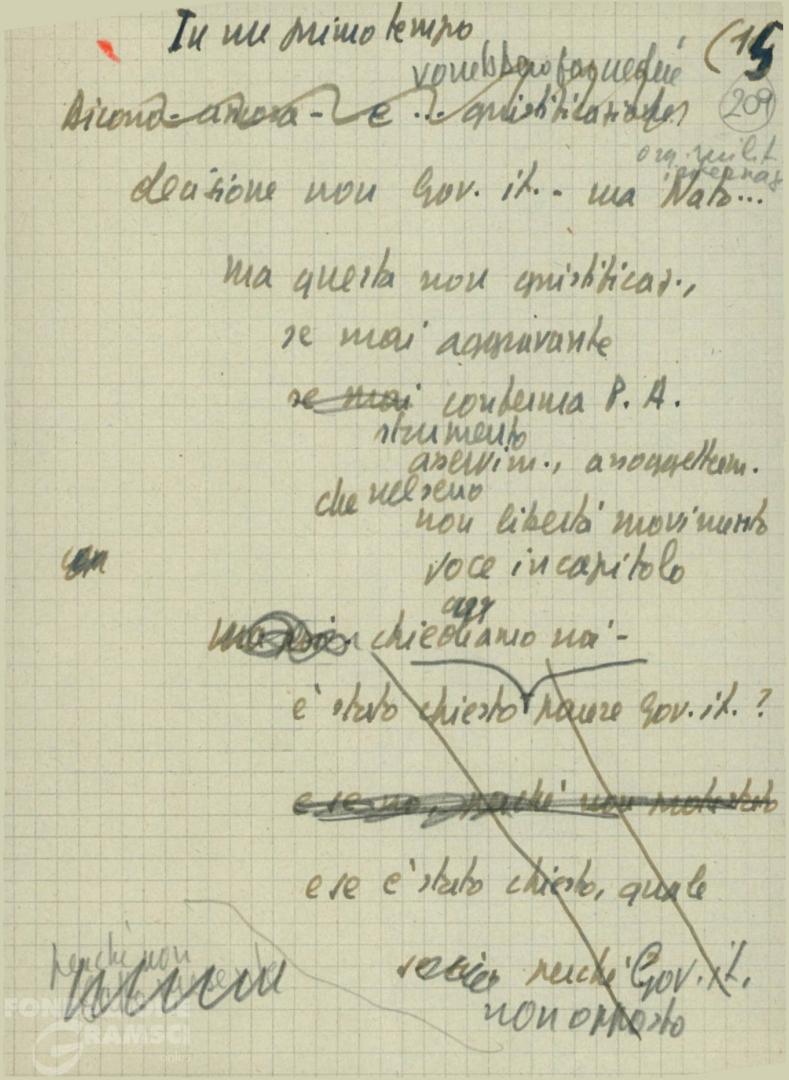 In un primo tempo
(15
209
Dicono - ancora - e ... giustificazione
org. milit.
decisione non Gov. it. - ma Nato...
ma questa non giustificaz.,
se mai aggravante
se mai conferma P. A.
strumento
asservim., assoggettam.
che nel seno
non libertà movimento
voce in capitolo
chiediamo noi -
è stato chiesto parere Gov. it. ?
e se no, perché non protestato
e se è stato chiesto, quale
perché non
perché Gov. it.
non opposto
FONDAZIONE
GRAMSCI